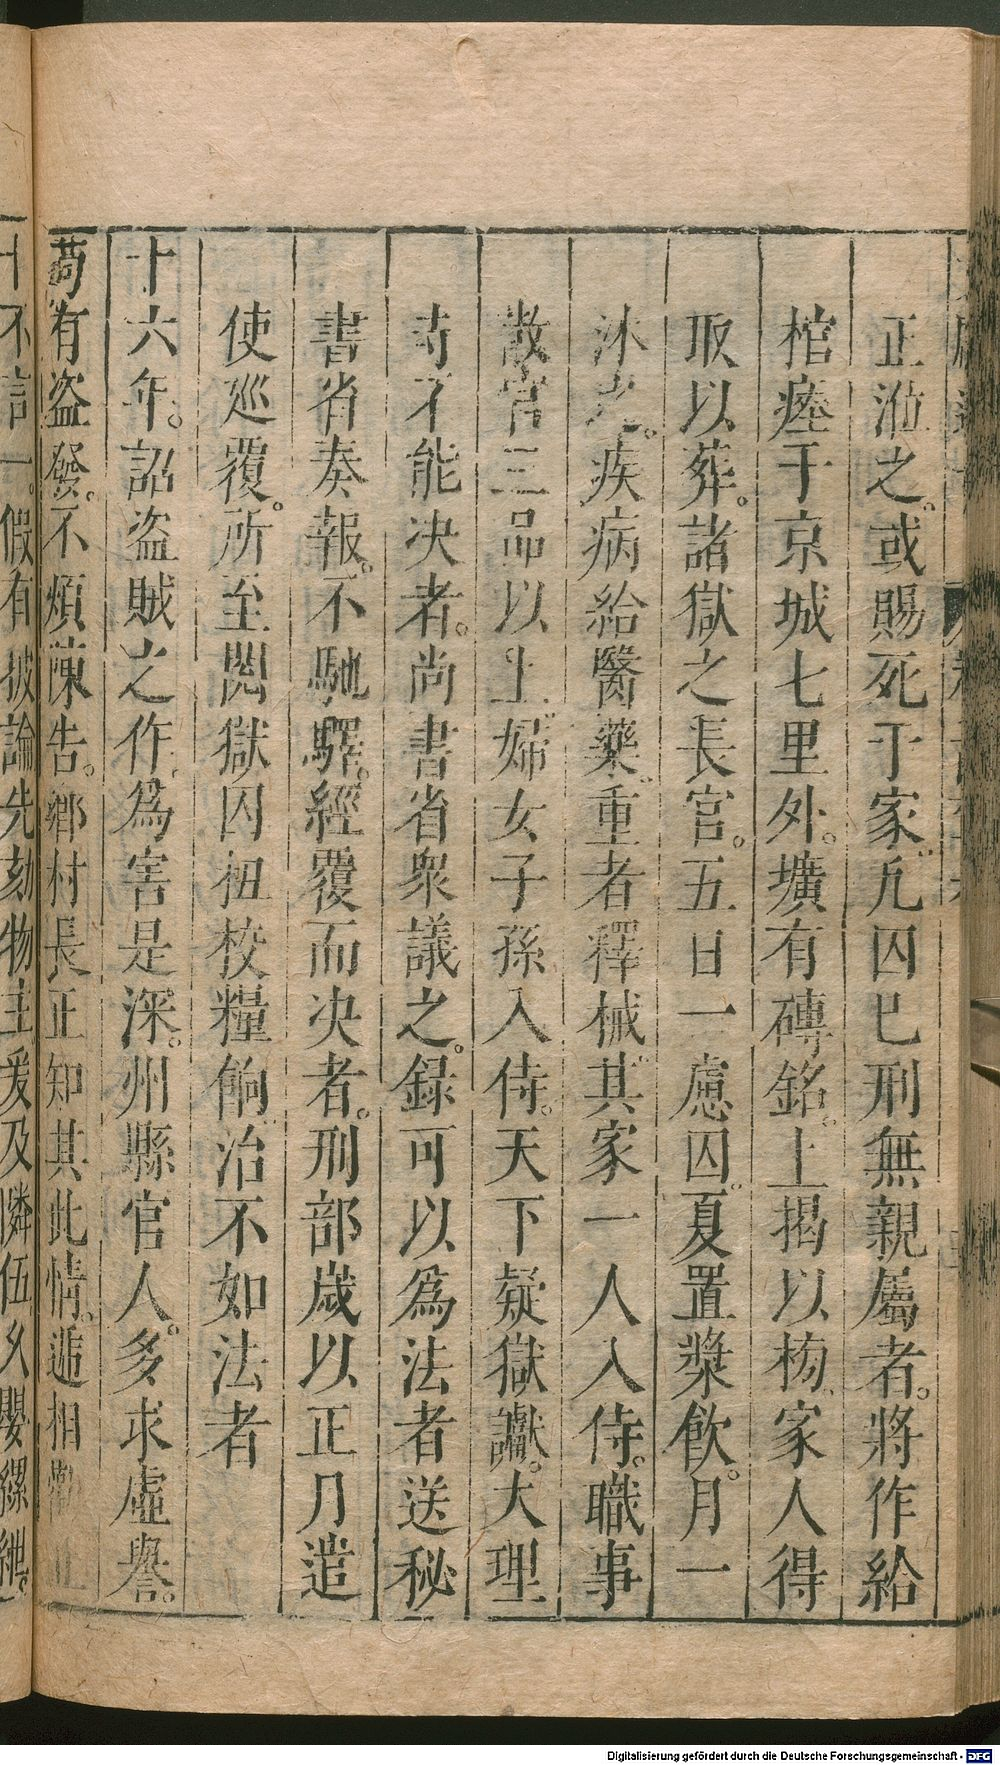 正涖之。或賜死于家。凡囚已刑無親屬者。將作給
棺瘞于京城七里外。壙有磚銘。上揭以榜。家人得
取以葬。諸獄之長官。五日一慮囚。夏置漿飲。月一
沐之。疾病給醫藥。重者釋械。其家一人入侍。職事
散官三品以上。婦女子孫入侍。天下疑獄讞。大理
寺不能决者。尚書省衆議之。録可以為法者送秘
書省奏報。不馳驛。經覆而决者。刑部歲以正月遣
使巡覆。所至閱獄囚杻校糧餉。治不如法者
十六年。詔盜賊之作。為害是深。州縣官人。多求虛譽。
苟有盜發。不煩陳告。鄉村長正知其此情。遞相勸止
十不言一。假有披論先劾物主爰及隣伍久嬰縲紲。
Digitalisierung gefördert durch die Deutsche Forschungsgemeinschaft - DFG